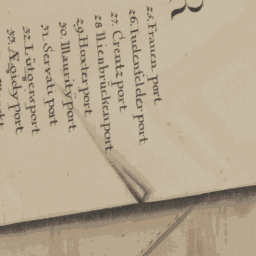 R
25. Frauen port
26. Iudenfelder port
27. Creutz port
28 Nienbrücken port
29. Hoxter port
30. Mauritÿ port
31. Servati port
32. Lütgers port
33. Ægidy port